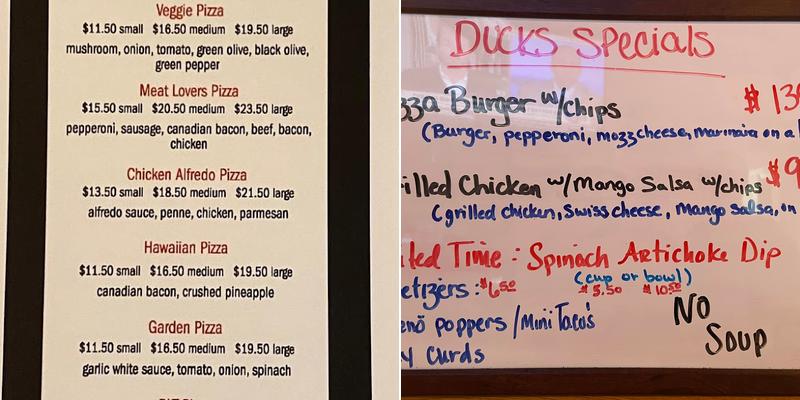 Veggie Pizza
$11.50 small $16.50 medium $19.50 large
mushroom, onion, tomato, green olive, black olive,
green pepper
Meat Lovers Pizza
$15.50 small $20.50 medium $23.50 large
pepperoni, sausage, canadian bacon, beef, bacon,
chicken
Chicken Alfredo Pizza
$13.50 small $18.50 medium $21.50 large
alfredo sauce, penne, chicken, parmesan
Hawaiian Pizza
$11.50 small $16.50 medium $19.50 large
canadian bacon, crushed pineapple
Garden Pizza
$11.50 small $16.50 medium $19.50 large
garlic white sauce, tomato, onion, spinach
Ducks Specials
zza Burger w/chips $13
(Burger, pepperoni, mozz cheese, marinara on a
illed Chicken w/Mango Salsa w/chips $9
(grilled chicken, Swiss cheese, Mango Salsa, on
ted Time: Spinach Artichoke Dip
(cup or bowl)
etizers: $6.50 $5.50 $10.50
eno poppers/Mini Taco's
y Curds
No
Soup